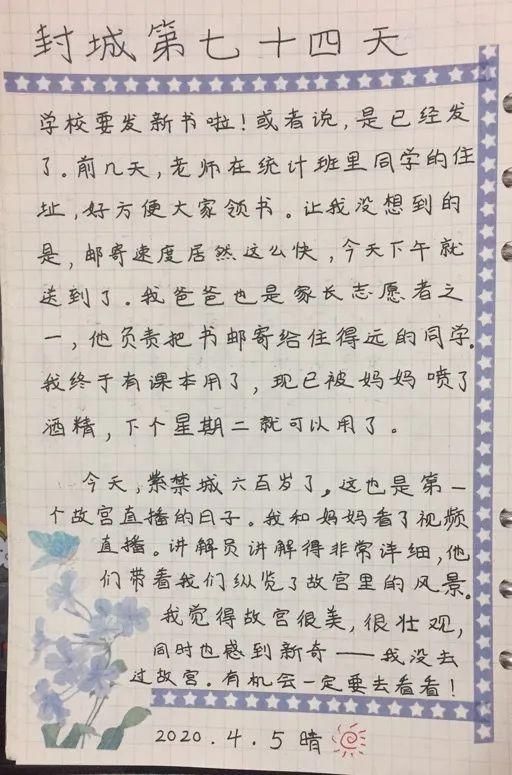 封城第七十四天
学校要发新书啦！或者说，是已经发
了。前几天，老师在统计班里同学的住
址，好方便大家领书。让我没想到的
是，邮寄速度居然这么快，今天下午就
送到了。我爸爸也是家长志愿者之
一，他负责把书邮寄给住得远的同学。
我终于有课本用了，现已被妈妈喷了
酒精，下个星期二就可以用了。
今天，紫禁城六百岁了。这也是第一
个故宫直播的日子。我和妈妈看了视频
直播。讲解员讲解得非常详细，他
们带着我们纵览了故宫里的风景。
我觉得故宫很美，很壮观，
同时也感到新奇——我没去
过故宫。有机会一定要去看看！
2020.4.5 晴